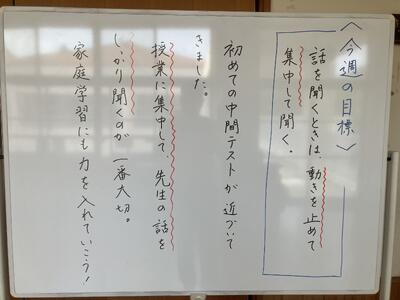 〈今週の目標〉
話を聞くときは、動きを止めて
集中して聞く。
初めての中間テストが近づいて
きました。
授業に集中して、先生の話を
しっかり聞くのが一番大切。
家庭学習にも力を入れていこう!